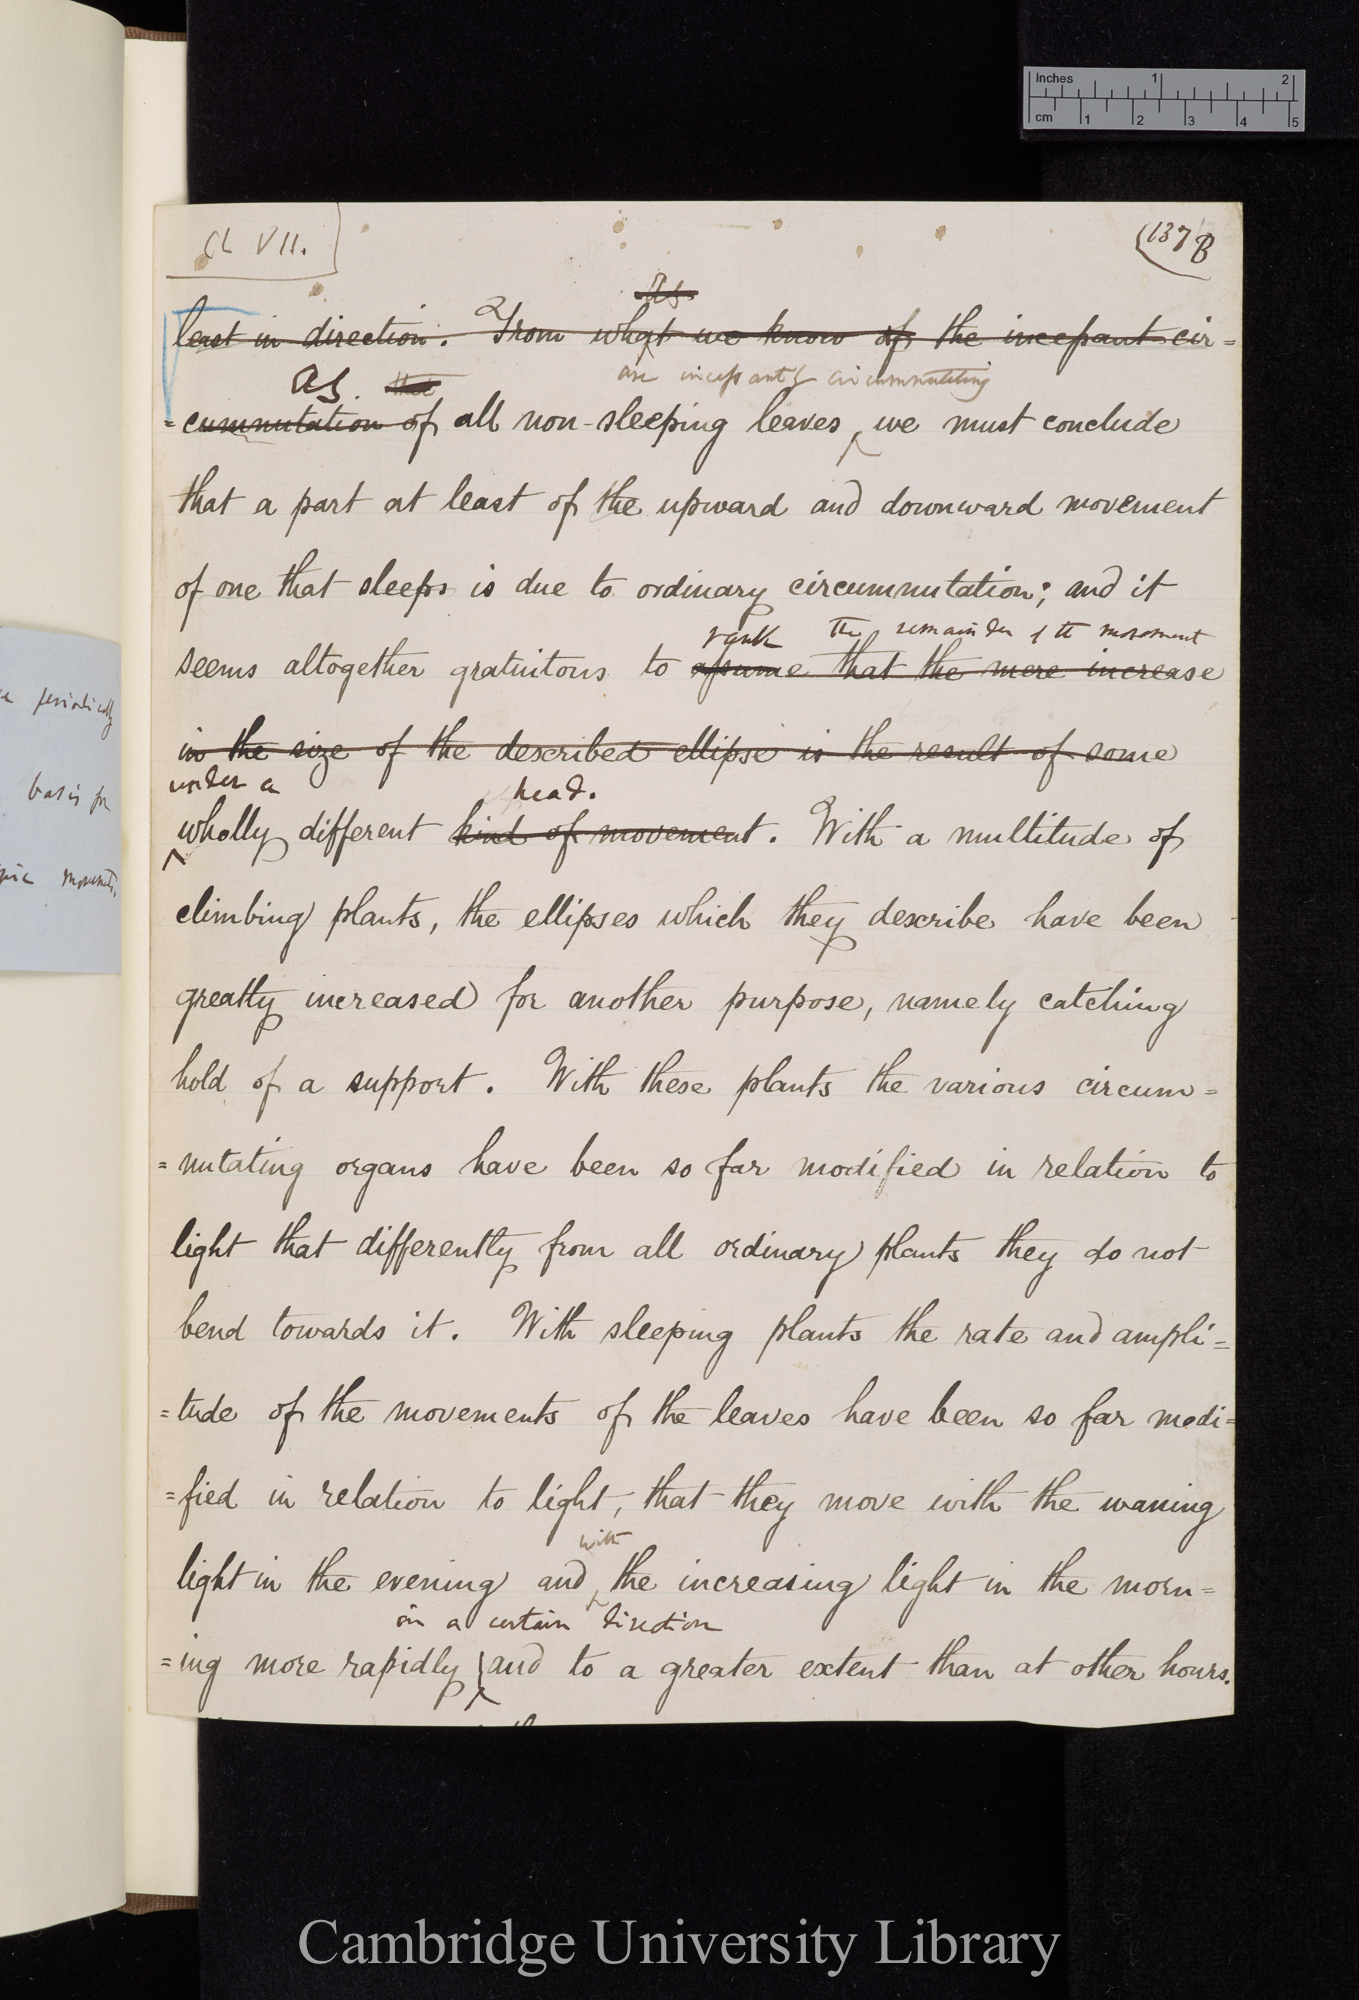 Inches 1 2
cm 1 2 3 4 5
Ch VII.
(137 B
as
least in direction. From what we know of the incessant cir=
are incessantly circumnutating
As. that
=cumnutation of all non-sleeping leaves, we must conclude
that a part at least of the upward and downward movement
of one that sleeps is due to ordinary circumnutation; and it
rank the remainder of the movement
seems altogether gratuitous to assume that the mere increase
in the size of the described ellipse is the result of some
under a head.
wholly different kind of movement. With a multitude of
climbing plants, the ellipses which they describe have been
greatly increased for another purpose, namely catching
hold of a support. With these plants the various circum=
=nutating organs have been so far modified in relation to
light that differently from all ordinary plants they do not
bend towards it. With sleeping plants the rate and ampli=
=tude of the movements of the leaves have been so far modi=
=fied in relation to light, that they move with the waning
with
light in the evening and the increasing light in the morn=
in a certain direction
=ing more rapidly and to a greater extent than at other hours.
periodically
basis for
movements,
Cambridge University Library